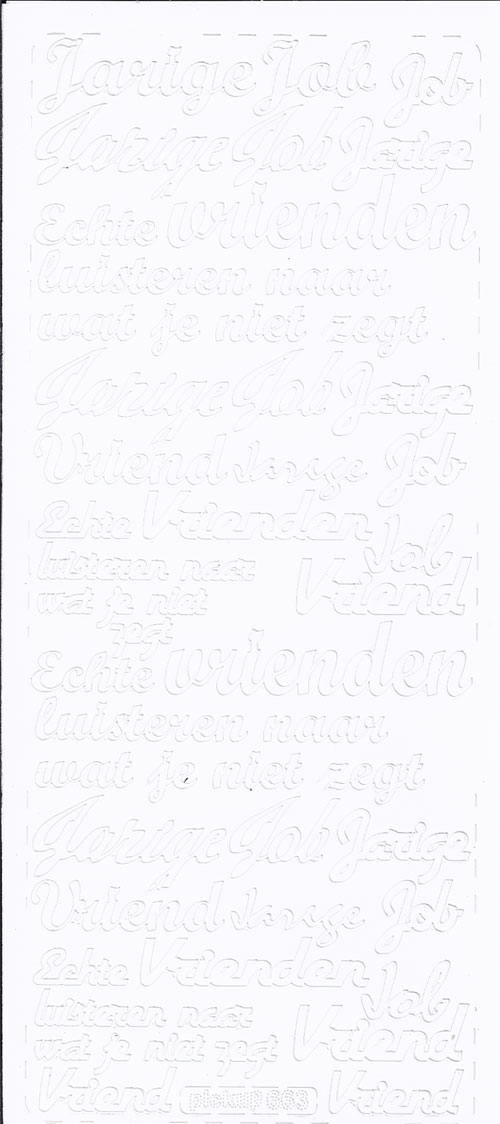 Jarige Job Job
Jarige Job Jarige
Echte vrienden
luisteren naar
wat je niet zegt
Jarige Job Jarige
Vriend Jarige Job
Echte Vrienden Job
luisteren naar Vriend
wat je niet
zegt
Echte vrienden
luisteren naar
wat je niet zegt
Jarige Job Jarige
Vriend Jarige Job
Echte Vrienden Job
luisteren naar Vriend
wat je niet zegt
Vriend pickup 663 Vriend